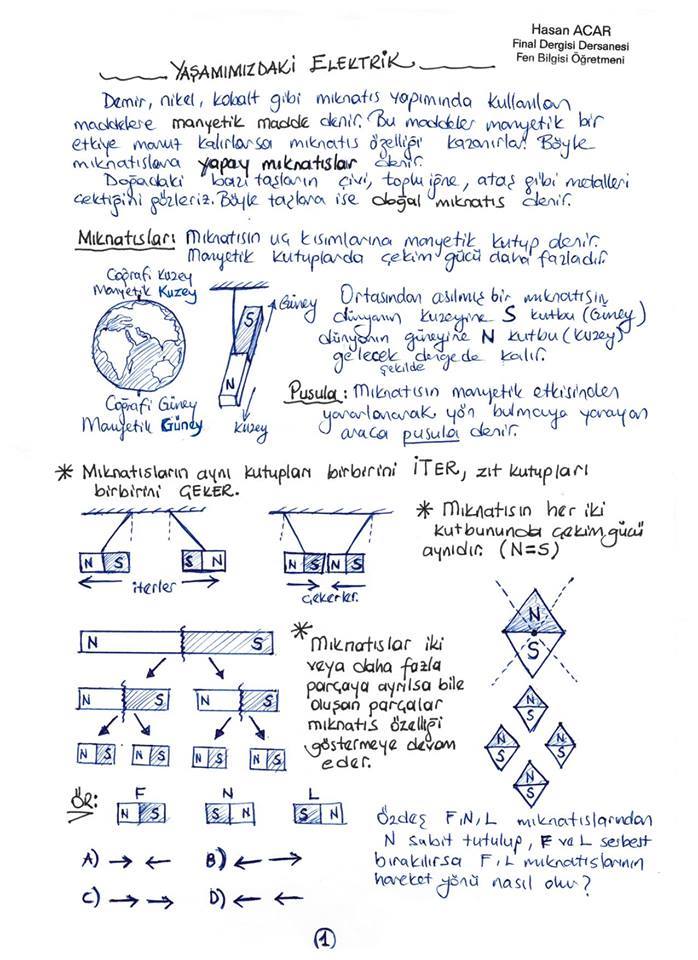 Hasan ACAR
Final Dergisi Dersanesi
Fen Bilgisi Öğretmeni
YAŞAMIMIZDAKİ ELEKTRİK
Demir, nikel, kobalt gibi mıknatıs yapımında kullanılan
maddelere manyetik madde denir. Bu maddeler manyetik bir
etkiye maruz kalırlarsa mıknatıs özelliği kazanırlar. Böyle
mıknatıslara yapay mıknatıslar denir.
Doğadaki bazı taşların çivi, toplu iğne, ataş gibi metalleri
çektiğini gözleriz. Böyle taşlara ise doğal mıknatıs denir.
Mıknatıslar: Mıknatısın uç kısımlarına manyetik kutup denir.
Manyetik kutuplarda çekim gücü daha fazladır.
Coğrafi Kuzey
Manyetik Kuzey
Coğrafi Güney
Manyetik Güney
S
N
Güney
Kuzey
Ortasından asılmış bir mıknatısın
dünyanın kuzeyine S kutbu (Güney)
dünyanın güneyine N kutbu (Kuzey)
gelecek şekilde dengede kalır.
Pusula: Mıknatısın manyetik etkisinden
yararlanarak yön bulmaya yarayan
araca pusula denir.
* Mıknatısların aynı kutupları birbirini İTER, zıt kutupları
birbirini ÇEKER.
N S S N
iterler
N S N S
Çekerler.
* Mıknatısın her iki
kutbununda çekim gücü
aynıdır. (N=S)
N S
N S N S
N S N S N S N S
* Mıknatıslar iki
veya daha fazla
parçaya ayrılsa bile
oluşan parçalar
mıknatıs özelliği
göstermeye devam
eder.
N
S
N
S
N
S
N
S
N
S
ÖR:
F N L
N S S N S N
A) → ← B) ← →
C) → → D) ← ←
Özdeş F, N, L mıknatıslarından
N sabit tutulup, F ve L serbest
bırakılırsa F, L mıknatıslarının
hareket yönü nasıl olur?
1